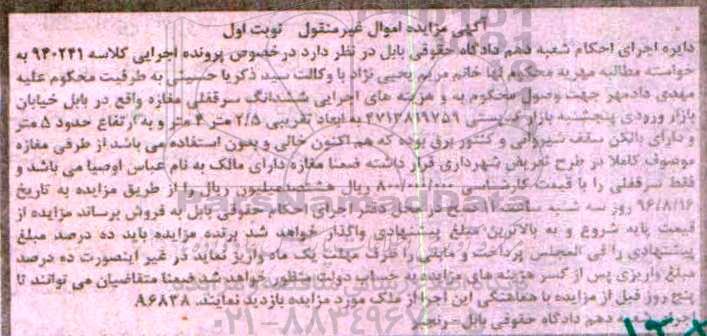 آگهی مزایده اموال غیرمنقول نوبت اول
دایره اجرای احکام شعبه دهم دادگاه حقوقی بابل در نظر دارد درخصوص پرونده اجرایی کلاسه ۹۴۰۲۴۱ به
خواسته مطالبه مهریه محکوم لها خانم مریم یحیی نژاد با وکالت سید ذکریا حسینی به طرفیت محکوم علیه
مهدی دادمهر جهت وصول محکوم به و هزینه های اجرایی ششدانگ سرقفلی مغازه واقع در بابل خیابان
بازار ورودی پنجشنبه بازار کدپستی ۴۷۱۳۸۱۹۷۵۹ به ابعاد تقریبی ۲/۵ متر ۴ متر و به ارتفاع حدود ۵ متر
و دارای بالکن سقف شیروانی و کنتور برق بوده که هم اکنون خالی و بدون استفاده می باشد از طرفی مغازه
موصوف کاملا در طرح تعریض شهرداری قرار داشته ضمنا مغازه دارای مالک به نام عباس اوصیا می باشد و
فقط سرقفلی را با قیمت کارشناسی ۸۰۰/۰۰۰/۰۰۰ ریال هشتصد میلیون ریال را از طریق مزایده به تاریخ
۹۶/۸/۱۶ روز سه شنبه ساعت صبح در محل دفتر اجرای احکام حقوقی بابل به فروش برساند مزایده از
قیمت پایه شروع و به بالاترین مبلغ پیشنهادی واگذار خواهد شد برنده مزایده باید ده درصد مبلغ
پیشنهادی را فی المجلس پرداخت و مابقی را ظرف مهلت یک ماه واریز نماید در غیر اینصورت ده درصد
مبلغ واریزی پس از کسر هزینه های مزایده به حساب دولت منظور خواهد شد ضمنا متقاضیان می توانند تا
پنج روز قبل از مزایده با هماهنگی این اجرا از ملک مورد مزایده بازدید نمایند. ۸۹۶۸۳۸
شعبه دهم دادگاه حقوقی بابل - رنجبر
ParsNamadData
۰۲۱-۸۸۳۴۹۶۷۰